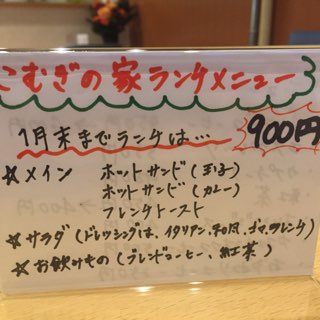 こむぎの家ランチメニュー
1月末までランチは… 900円
☆メイン ホットサンド(玉子)
ホットサンド(カレー)
フレンチトースト
☆サラダ(ドレッシングは、イタリアン、和風、ゴマ、フレンチ)
☆お飲みもの(ブレンドコーヒー、紅茶)